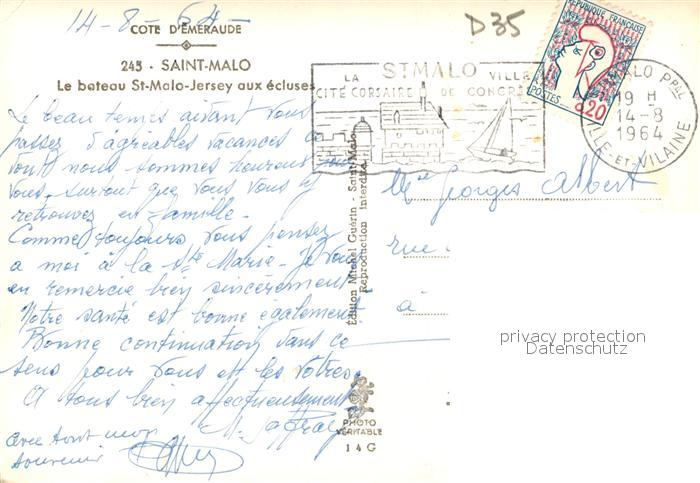 14-8-64-
D35
COTE D'ÉMERAUDE
245 - SAINT-MALO
Le bateau St-Malo-Jersey aux écluses
LA ST MALO VILLE
CITÉ CORSAIRE DE CONGRÈS
REPUBLIQUE FRANÇAISE
POSTES
0,20
MALO Ppal
19 H
14-8
1964
ILLE-ET-VILAINE
Le beau temps aidant vous
passez d'agréables vacances
tout nous sommes heureux
vous. surtout que vous vous y
retrouvez en famille.
Comme toujours vous pensez
a moi à la Ste Marie. Je vous
en remercie bien sincèrement
Notre santé est bonne également
Bonne continuation dans ce
sens pour vous et les vôtres.
A tous bien affectueusement
avec tout mon
souvenir
Georges Albert
rue
à
Edition Michel Guérin - Saint-Malo
Reproduction interdite
PHOTO
VÉRITABLE
14 G
privacy protection
Datenschutz